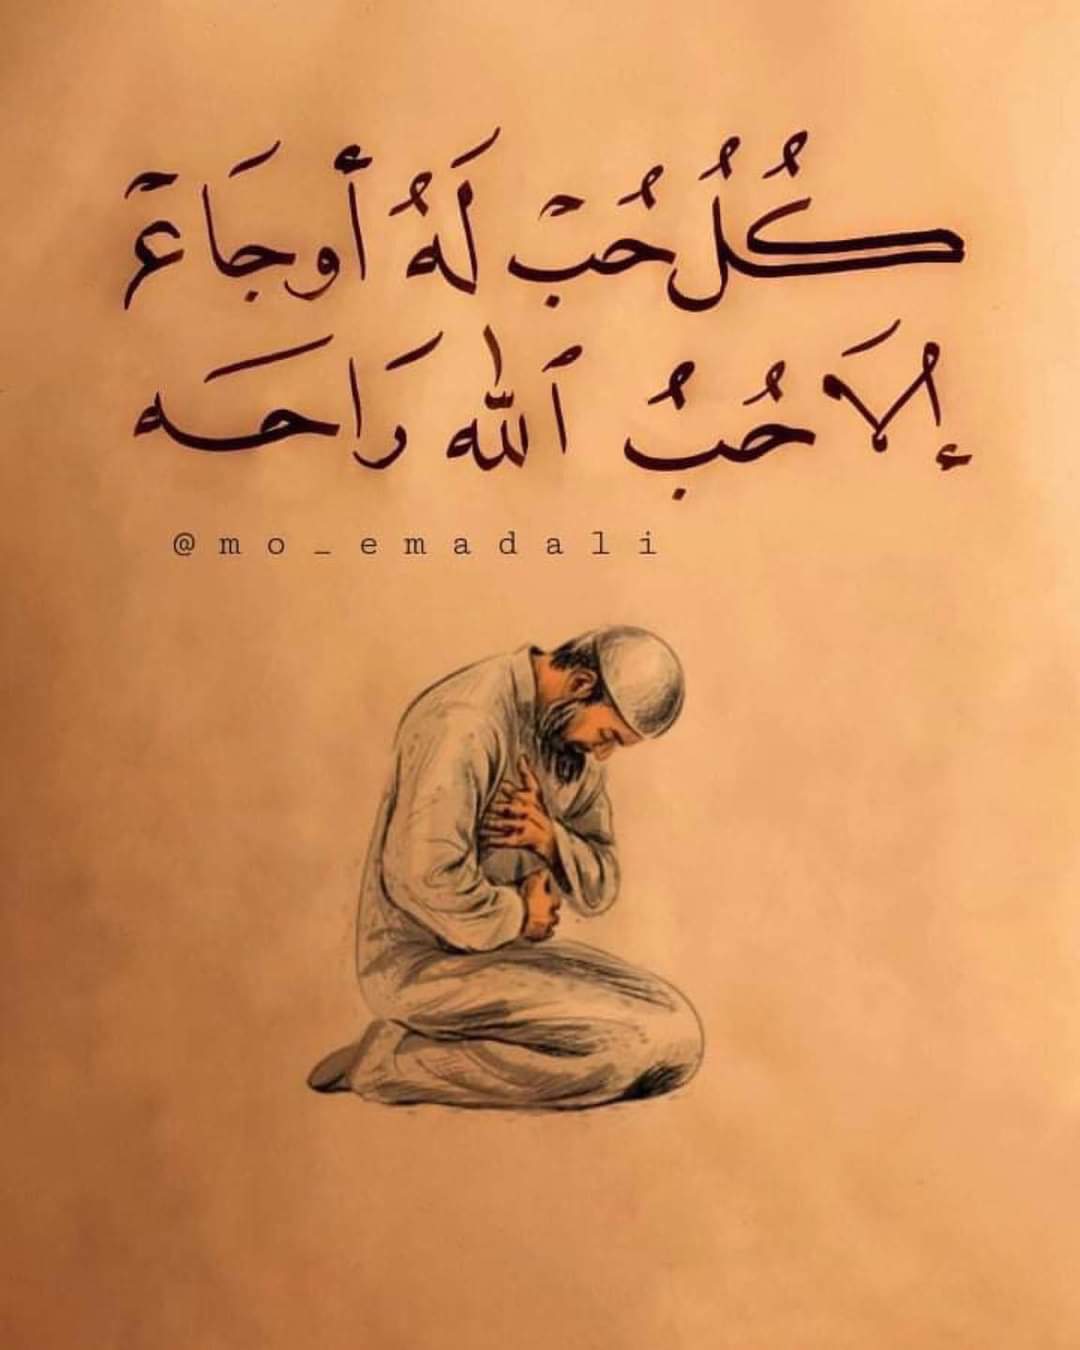 كُلُ حُبْ لَهُ أوجَاعْ
إلاَ حُبُ ٱللّٰه رَاحَه
@mo_emadali